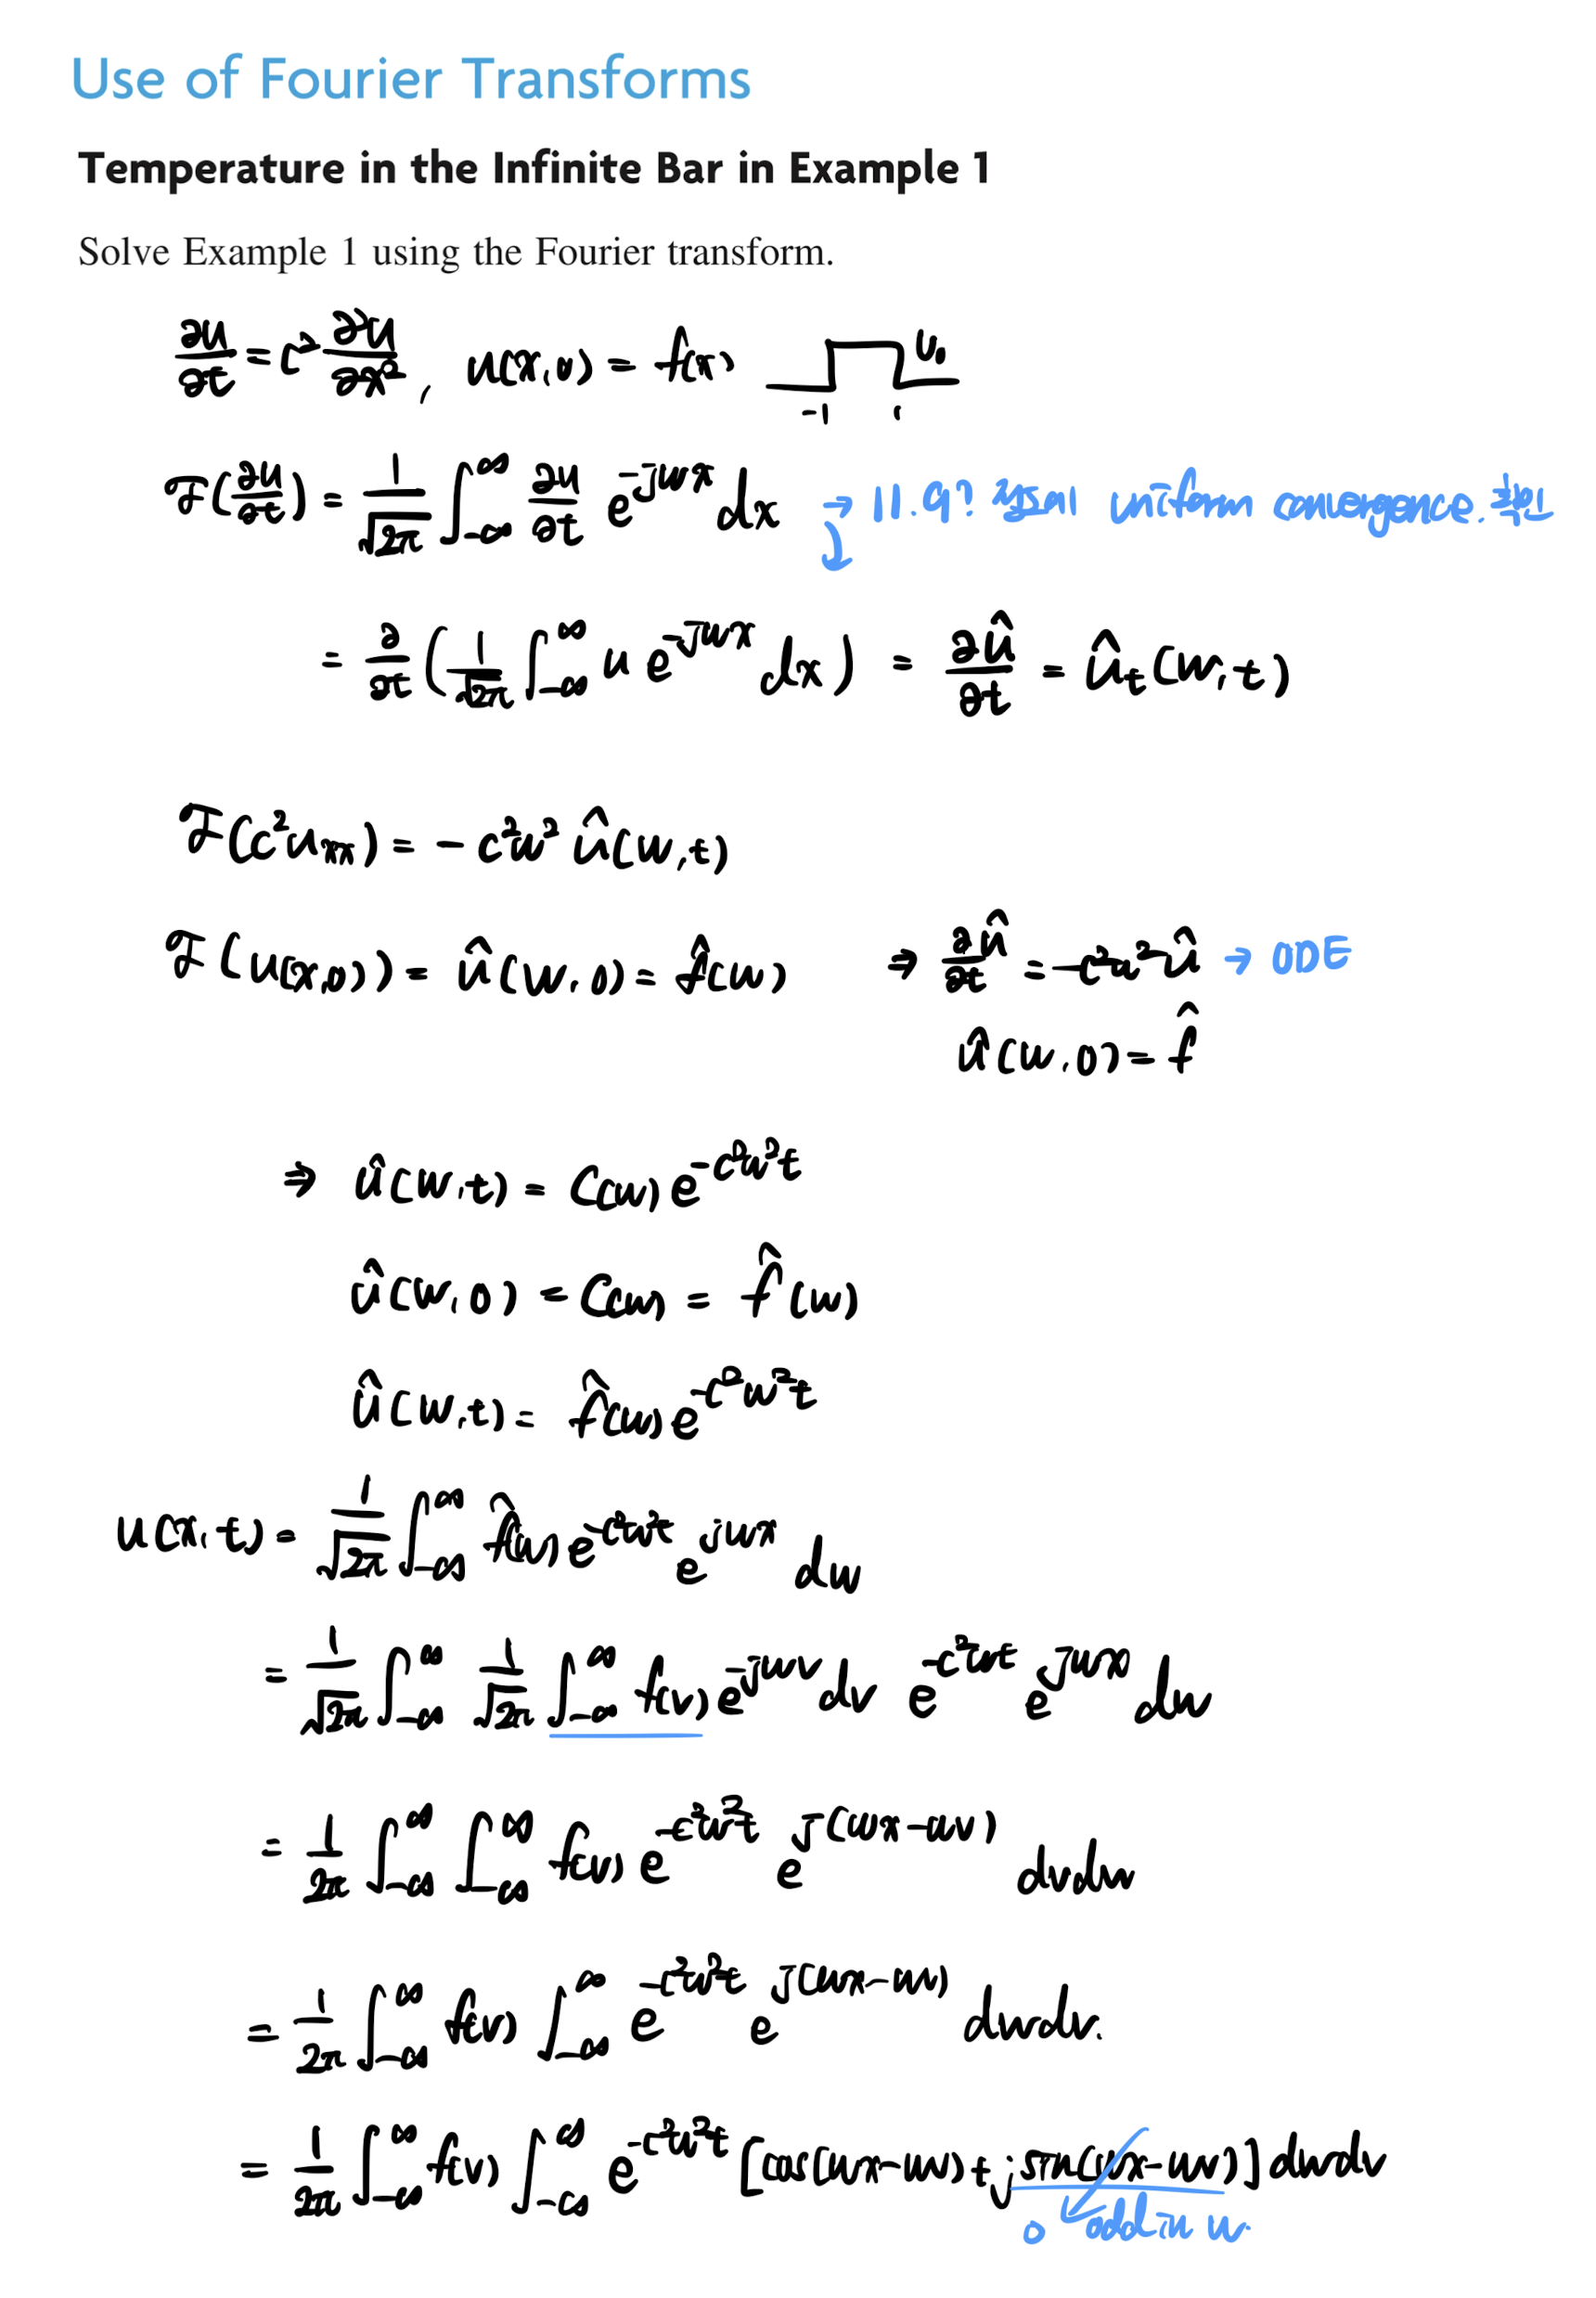 Use of Fourier Transforms
Temperature in the Infinite Bar in Example 1
Solve Example 1 using the Fourier transform.
∂u/∂t = c² ∂²u/∂x², u(x,0) = f(x) -1 1 U₀
ℱ(∂u/∂t) = 1/√2π ∫_{-∞}^{∞} ∂u/∂t e^{-jwx} dx → 11.9? uniform convergence.
= ∂/∂t (1/√2π ∫_{-∞}^{∞} u e^{-jwx} dx) = ∂û/∂t = û_t(w,t)
ℱ(c²u_xx) = -c²w² û(w,t)
ℱ(u(x,0)) = û(w,0) = f̂(w) ⇒ ∂û/∂t = -c²w² û → ODE
û(w,0) = f̂
⇒ û(w,t) = C(w) e^{-c²w²t}
û(w,0) = C(w) = f̂(w)
û(w,t) = f̂(w) e^{-c²w²t}
u(x,t) = 1/√2π ∫_{-∞}^{∞} f̂(w) e^{-c²w²t} e^{jwx} dw
= 1/√2π ∫_{-∞}^{∞} 1/√2π ∫_{-∞}^{∞} f(v) e^{-jwv} dv e^{-c²w²t} e^{jwx} dw
= 1/2π ∫_{-∞}^{∞} ∫_{-∞}^{∞} f(v) e^{-c²w²t} e^{j(wx-wv)} dvdw
= 1/2π ∫_{-∞}^{∞} f(v) ∫_{-∞}^{∞} e^{-c²w²t} e^{j(wx-wv)} dwdv.
= 1/2π ∫_{-∞}^{∞} f(v) ∫_{-∞}^{∞} e^{-c²w²t} [cos(wx-wv) + j sin(wx-wv)] dwdv
0 odd in w.